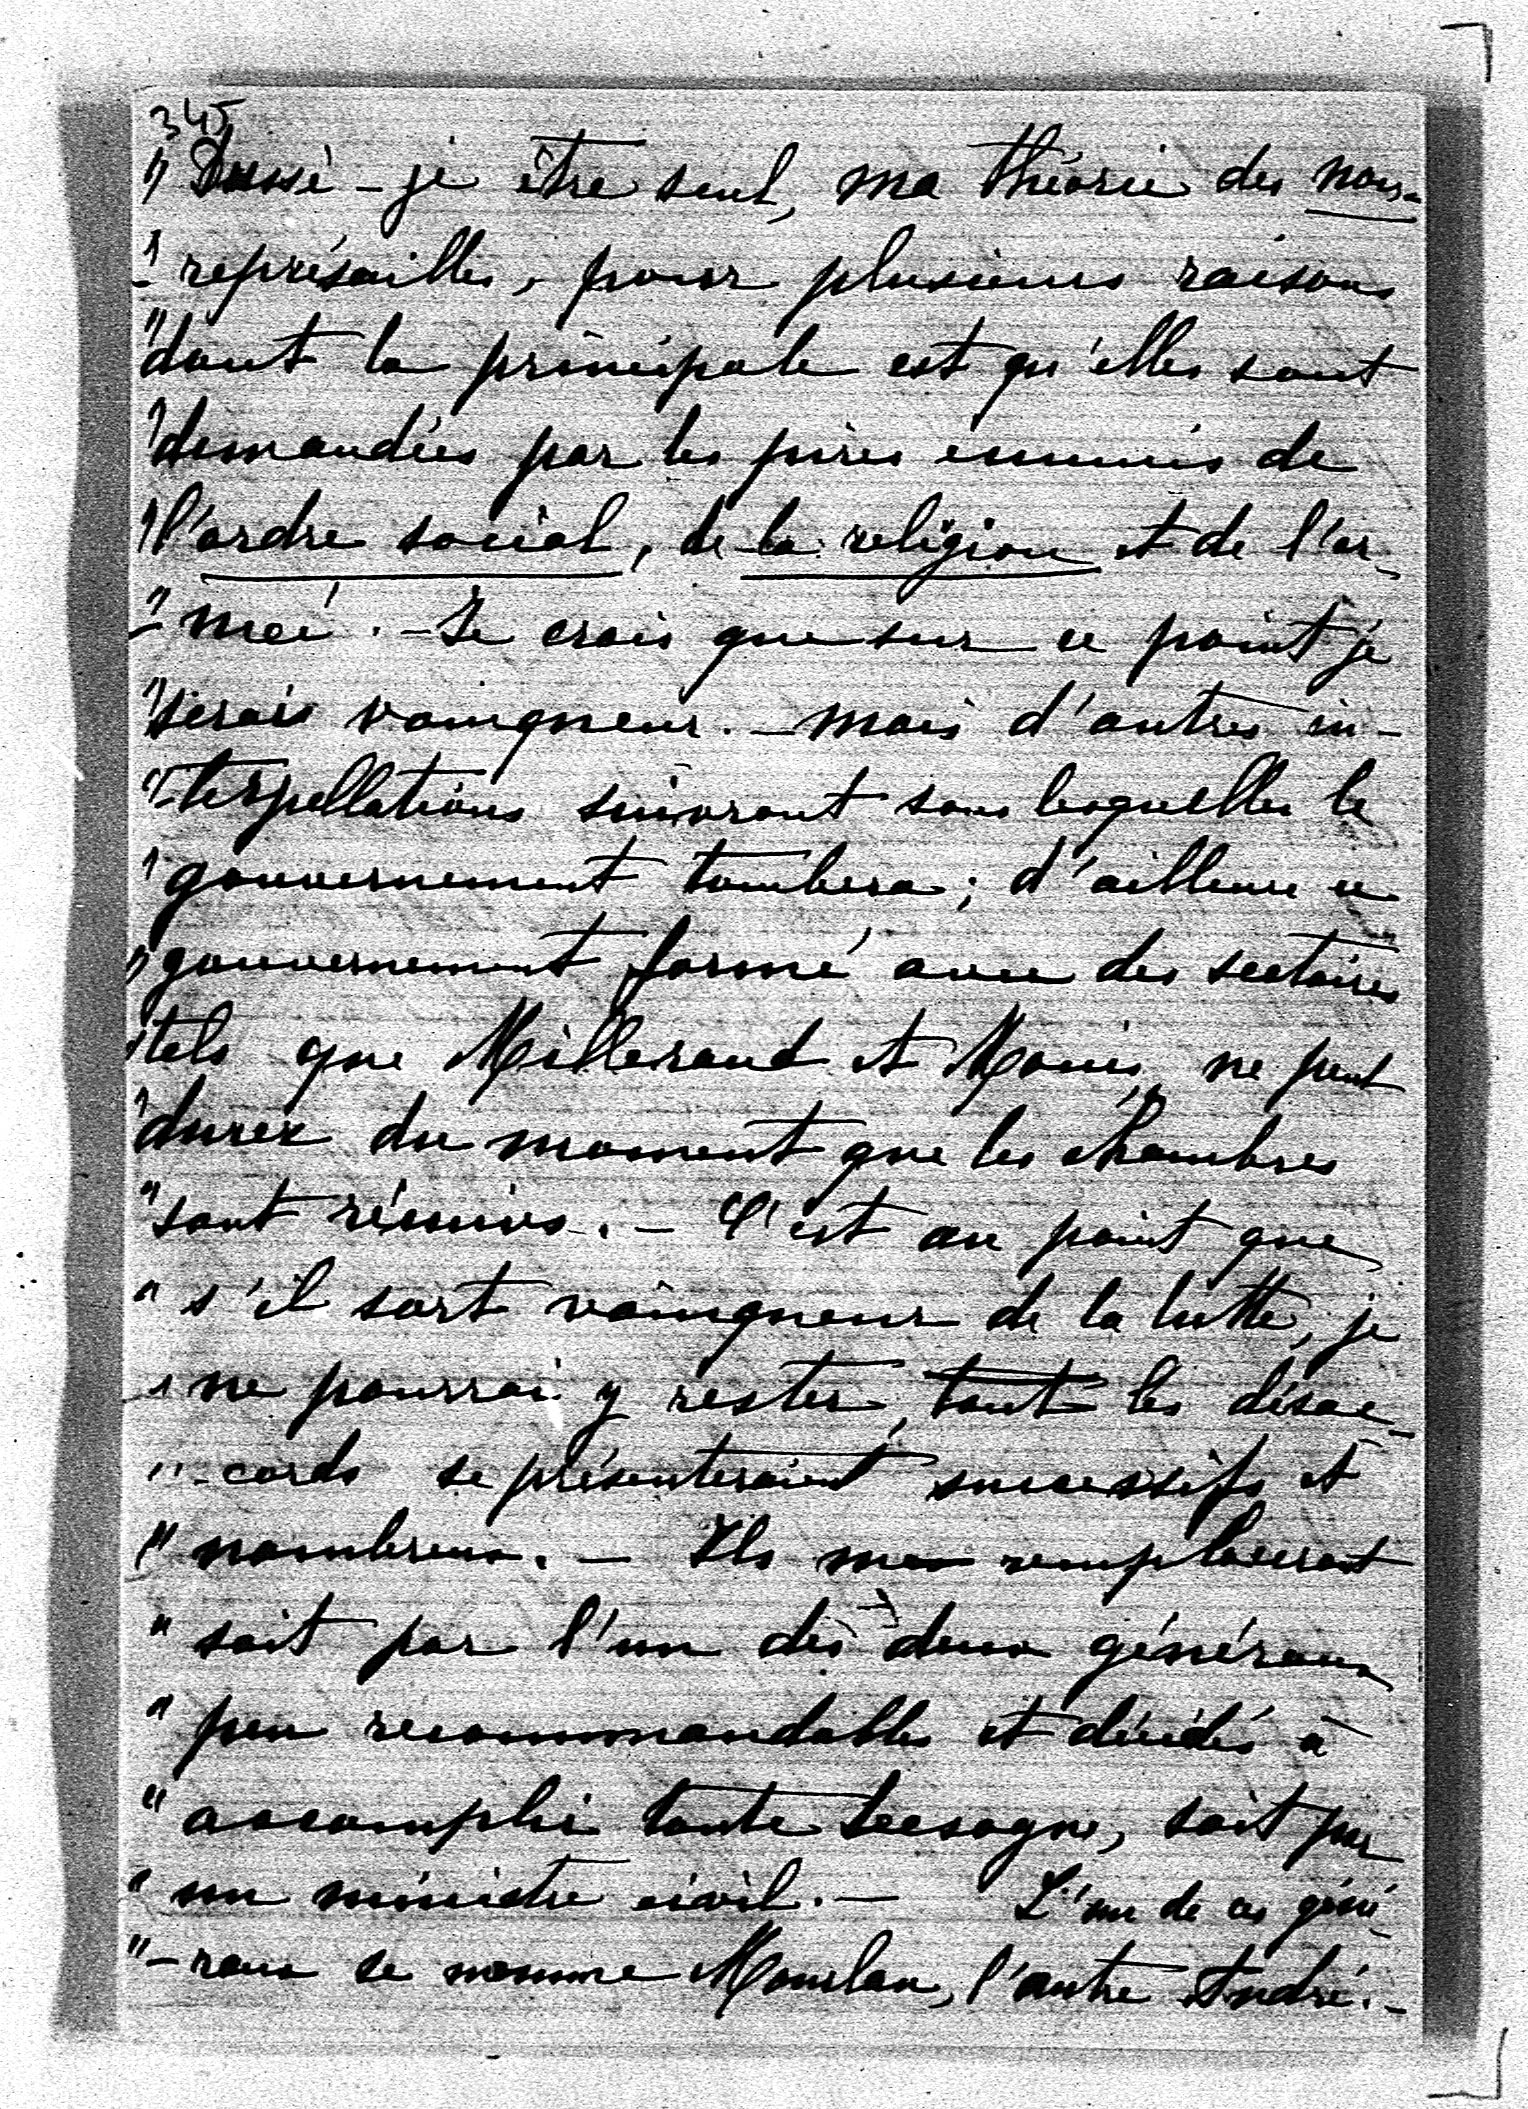 345
" Dussé-je être seul, ma théorie des non-
"- représailles, pour plusieurs raisons
" dont la principale est qu'elles sont
" demandées par les pires ennemis de
" l'ordre social, de la religion et de l'ar-
"- mée. - Je crois que sur ce point je
" serais vainqueur. - Mais d'autres in-
"- terpellations suivront sous lesquelles le
" gouvernement tombera; d'ailleurs ce
" gouvernement formé avec des sectaires
" tels que Millerand et Monis, ne peut
" durer du moment que les chambres
" sont réunies. - C'est au point que
" s'il sort vainqueur de la lutte, je
" ne pourrai y rester, tant les désac-
"- cords se présenteraient successifs et
" nombreux. - Ils me remplaceront
" soit par l'un des deux généraux
" peu recommandables et décidés à
" accomplir toute besogne, soit par
" un ministre civil. - L'un de ces géné-
"- raux se nomme Mourlan, l'autre André. -